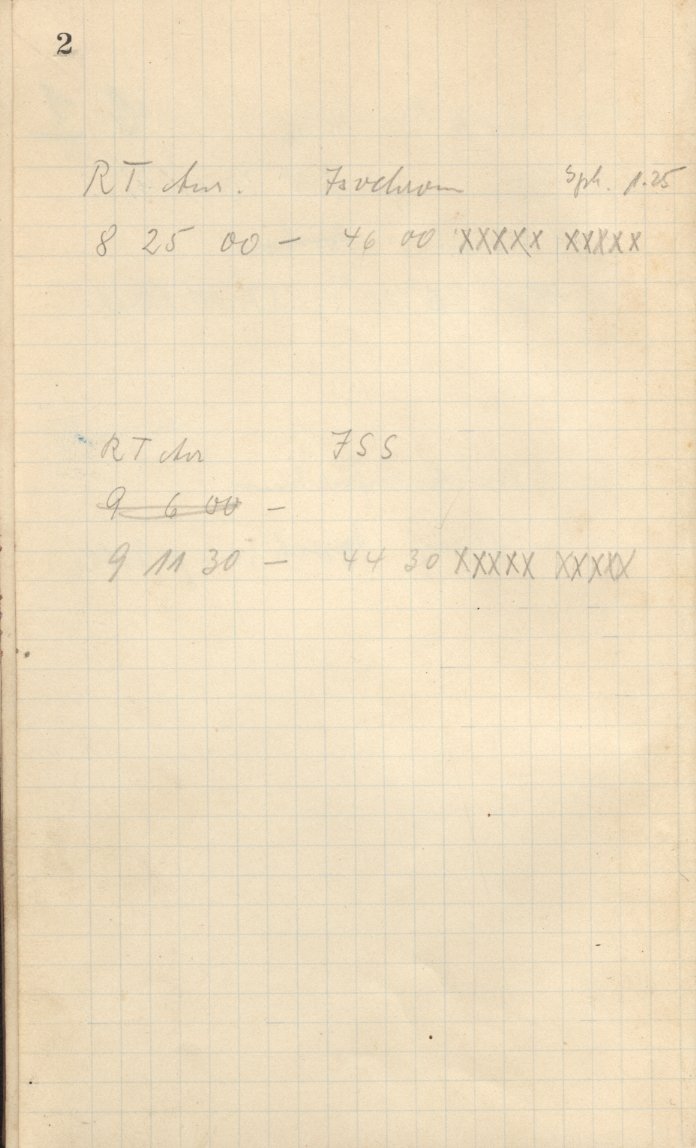 2
RT Aur. Isochrom Sph. p. 25
8 25 00 - 46 00 XXXXX XXXXX
RT Aur ISS
9 6 00 -
9 11 30 - 44 30 XXXXX XXXXX